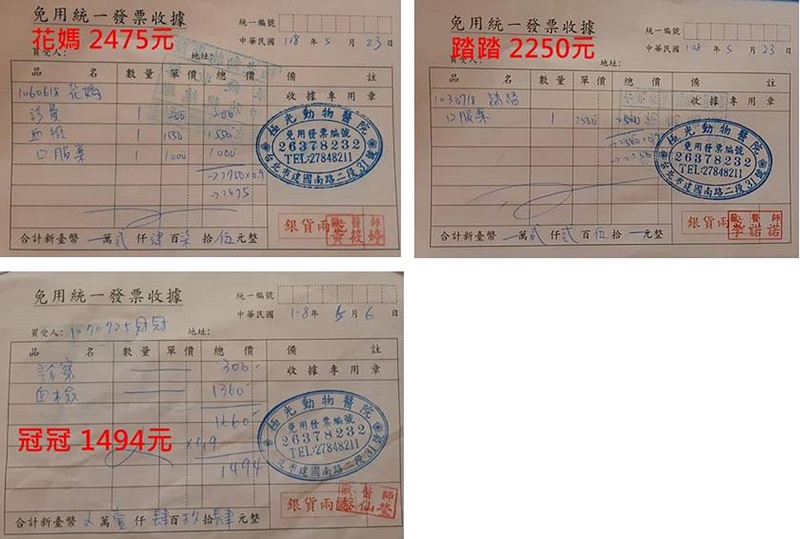 免用統一發票收據
花媽 2475元
統一編號
中華民國 108年 5月 23日
買受人:
地址:
品名 數量 單價 總價 備註
1060618 花媽
收據專用章
診費 1 200 200
血檢 1 1550 1550
口服藥 1 1000 1000
→2750×0.9
→2475
極光動物醫院
免用發票編號
26378232
TEL:27848211
台北市建國南路二段31號
銀貨兩
醫師
黃筱婷
合計新臺幣 萬貳仟肆百柒拾伍元整
免用統一發票收據
踏踏 2250元
統一編號
中華民國 108年 5月 23日
買受人:
地址:
品名 數量 單價 總價 備註
1030718 踏踏
收據專用章
口服藥 1 2500 2500
極光動物醫院
免用發票編號
26378232
TEL:27848211
台北市建國南路二段31號
銀貨兩
醫師
李諾諾
合計新臺幣 萬貳仟貳百伍拾 元整
免用統一發票收據
統一編號
中華民國 108年 5月 6日
買受人: 1070725冠冠
地址:
品名 數量 單價 總價 備註
診察 300
收據專用章
血檢 1360
1660
冠冠 1494元
×0.9
1494
極光動物醫院
免用發票編號
26378232
TEL:27848211
台北市建國南路二段31號
銀貨兩
醫師
仙瑩
合計新臺幣 萬壹仟肆百玖拾肆元整